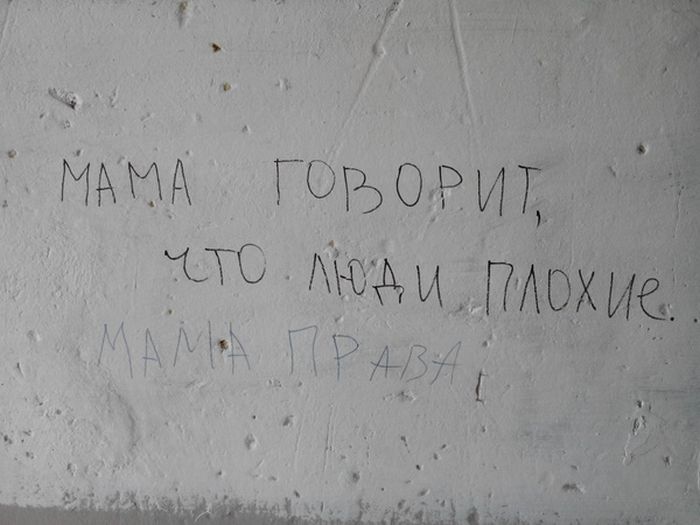 МАМА ГОВОРИТ,
ЧТО ЛЮДИ ПЛОХИЕ.
МАМА ПРАВА